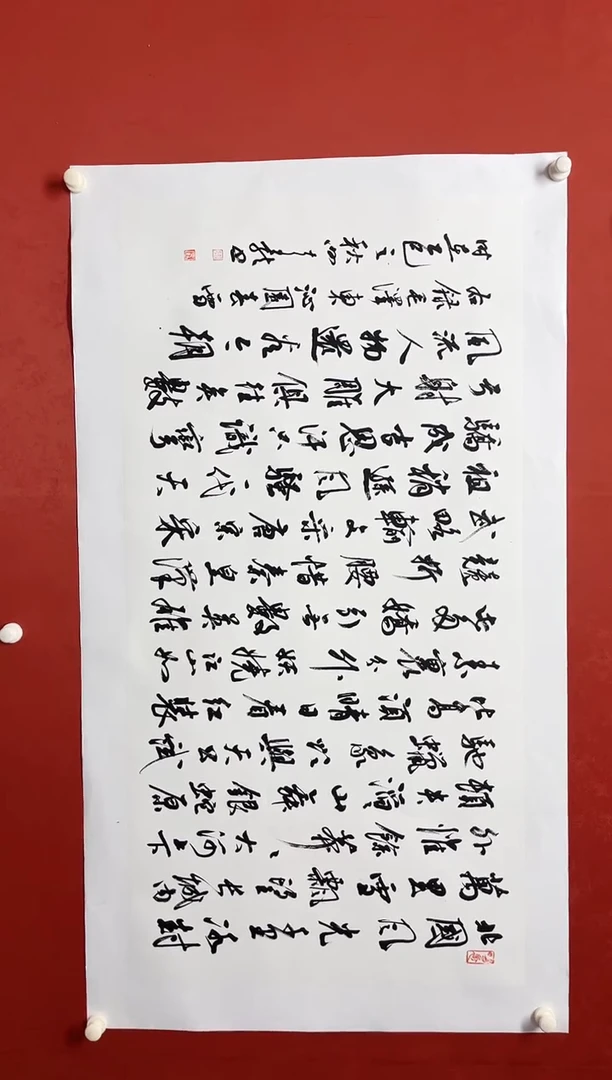 北國风光千里冰封
萬里雪飄望長城内
外惟餘莽、大河上下
頓失滔、山舞銀蛇原
馳蠟象欲與天公試
比高須晴日看紅裝
素裹分外妖嬈江山如
此多嬌引無數英雄
競折腰惜秦皇漢
武略輸文采唐宗宋
祖稍遜风騷一代天
驕成吉思汗只識彎
弓射大雕俱往矣數
風流人物還看今朝
右錄毛澤東沁園春雪
時之秋